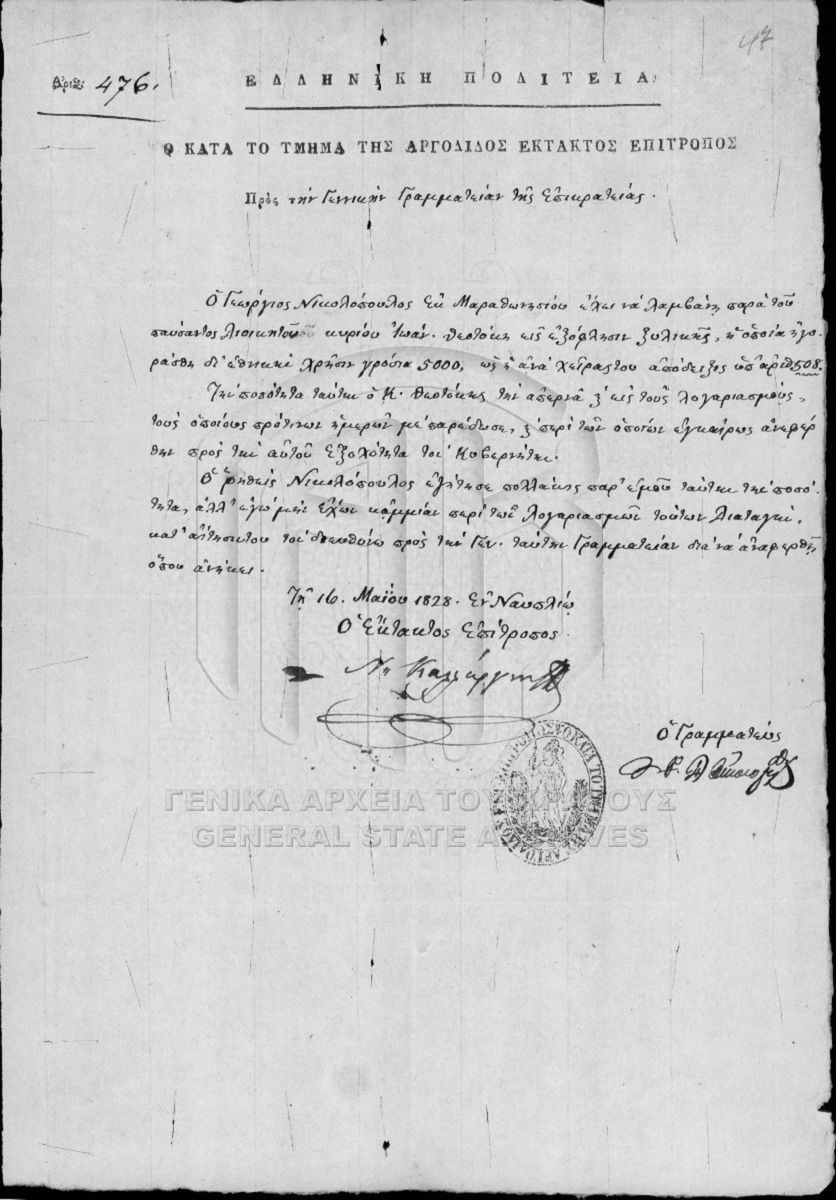 47
Ἀριθ: 476.
ΕΛΛΗΝΙΚΗ ΠΟΛΙΤΕΙΑ.
Ο ΚΑΤΑ ΤΟ ΤΜΗΜΑ ΤΗΣ ΑΡΓΟΛΙΔΟΣ ΕΚΤΑΚΤΟΣ ΕΠΙΤΡΟΠΟΣ
Πρὸς τὴν Γεννικὴν Γραμματείαν τῆς Ἐπικρατείας.
Ὁ Γεώργιος Νικολόπουλος ἐκ Μαραθωνησίου ἔχει νὰ λαμβάνῃ παρὰ τοῦ
παύσαντος Διοικητοῦ κυρίου Ἰωάν. Θεοτόκη εἰς ἐξόφλησιν ξυλικῆς, ἡ ὁποία ἠγο-
ράσθη δι' ἐθνικὴν χρῆσιν γρόσια 5000, ὡς ἡ ἀνὰ χεῖρας του ἀπόδειξις ὑπ' ἀριθ. 508.
Τὴν ποσότητα ταύτην ὁ Κ. Θεοτόκης τὴν ἀπερνᾶ εἰς τοὺς λογαριασμούς,
τοὺς ὁποίους πρό τινων ἡμερῶν μὲ παρέδωσε, περὶ τῶν ὁποίων ἐγκαίρως ἀνεφέρ-
θην πρὸς τὴν αὐτοῦ Ἐξοχότητα τὸν Κυβερνήτην.
Ὁ ῥηθεὶς Νικολόπουλος ἐζήτησε πολλάκις παρ' ἐμοῦ ταύτην τὴν ποσό-
τητα, ἀλλ' ἐγὼ μὴν ἔχων καμμίαν περὶ τῶν λογαριασμῶν τούτων διαταγήν,
κατ' αἴτησίν του τὸν διευθύνω πρὸς τὴν Γεν. ταύτην Γραμματείαν διὰ νὰ ἀναφερθῇ
ὅπου ἀνήκει.
Τῇ 16. Μαΐου 1828. Ἐν Ναυπλίῳ
Ὁ Ἔκτακτος Ἐπίτροπος
Ν. Καλλέργης
Ὁ Γραμματεὺς
ΓΕΝΙΚΑ ΑΡΧΕΙΑ ΤΟΥ ΚΡΑΤΟΥΣ
GENERAL STATE ARCHIVES